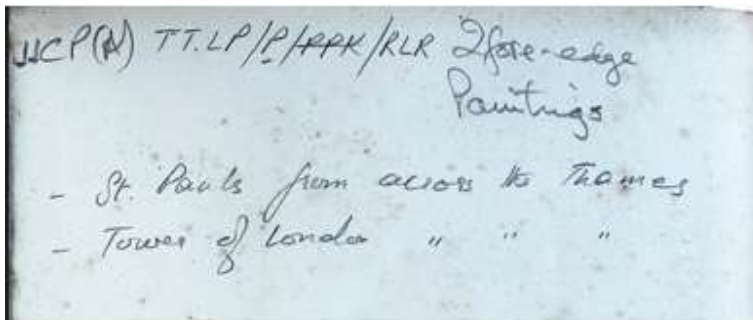 TT.LP/P/PPK/RLR 2 fore-edge
Paintings
- St. Pauls from across the Thames
- Tower of London " " "